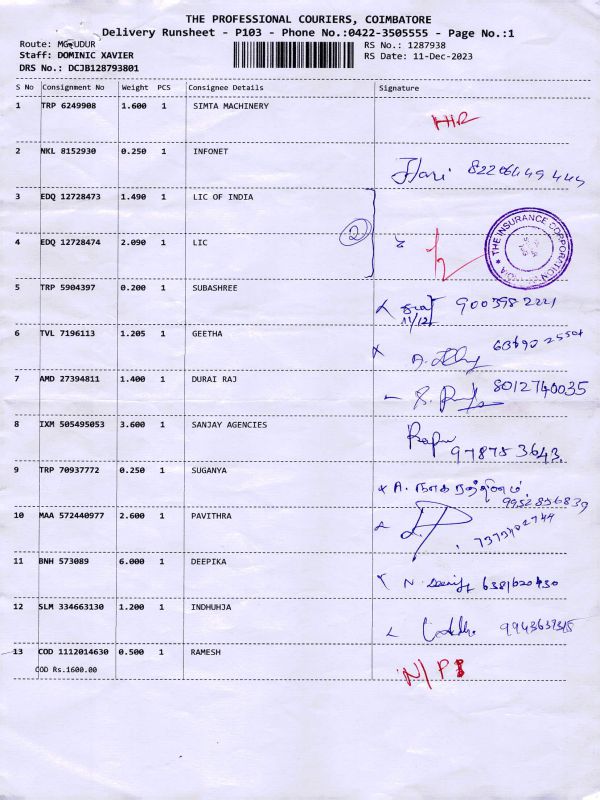 THE PROFESSIONAL COURIERS, COIMBATORE
Delivery Runsheet - P103 - Phone No.:0422-3505555 - Page No.:1
Route: RS No.: 1287938
Staff: DOMINIC XAVIER RS Date: 11-Dec-2023
DRS No.: DCJB128793801
S No Consignment No Weight PCS Consignee Details Signature
1 TRP 6249908 1.600 1 SIMTA MACHINERY
2 NKL 8152930 0.250 1 INFONET
Hari 8220649444
3 EDQ 12728473 1.490 1 LIC OF INDIA
2
THE INSURANCE CORPORATION
4 EDQ 12728474 2.090 1 LIC
5 TRP 5904397 0.200 1 SUBASHREE
9003982221
11/12
6 TVL 7196113 1.205 1 GEETHA
7 AMD 27394811 1.400 1 DURAI RAJ
8012740035
8 IXM 505495053 3.600 1 SANJAY AGENCIES
9 TRP 70937772 0.250 1 SUGANYA
10 MAA 572440977 2.600 1 PAVITHRA
11 BNH 573089 6.000 1 DEEPIKA
6381620430
12 SLM 334663130 1.200 1 INDHUHJA
13 COD 1112014630 0.500 1 RAMESH
COD Rs.1600.00